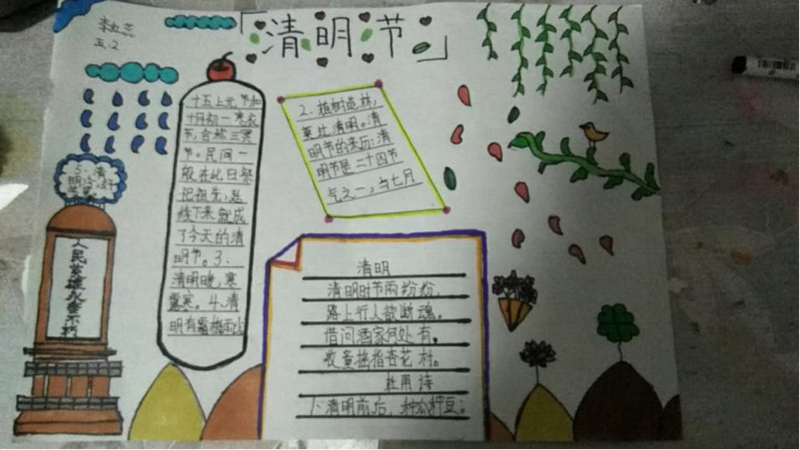 「清明节」
五.2
十五上元节和
十月初一寒衣
节,合称三冥
节。民间一
般在此日祭
祀祖先,延
续下来就成
了今天的清
明节。3、
清明晚,寒
露寒。4、清
明有霜梅雨少
2、植树造林,
莫过清明。清
明节的来历:清
明节是二十四节
气之一,与七月
5、清
人民英雄永垂不朽
清明
清明时节雨纷纷,
路上行人欲断魂。
借问酒家何处有。
牧童摇指杏花村。
杜甫诗
1、清明前后、种瓜种豆。